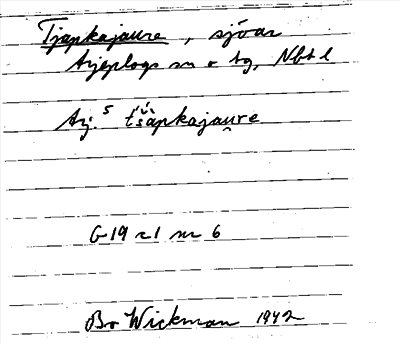 Tjapkajaure, sjöar
Arjeplogs sn o tg, Nbt l
Arj. 5 t́šápkajau̯re
G 19 r 1 nr 6
Bo Wickman 1942